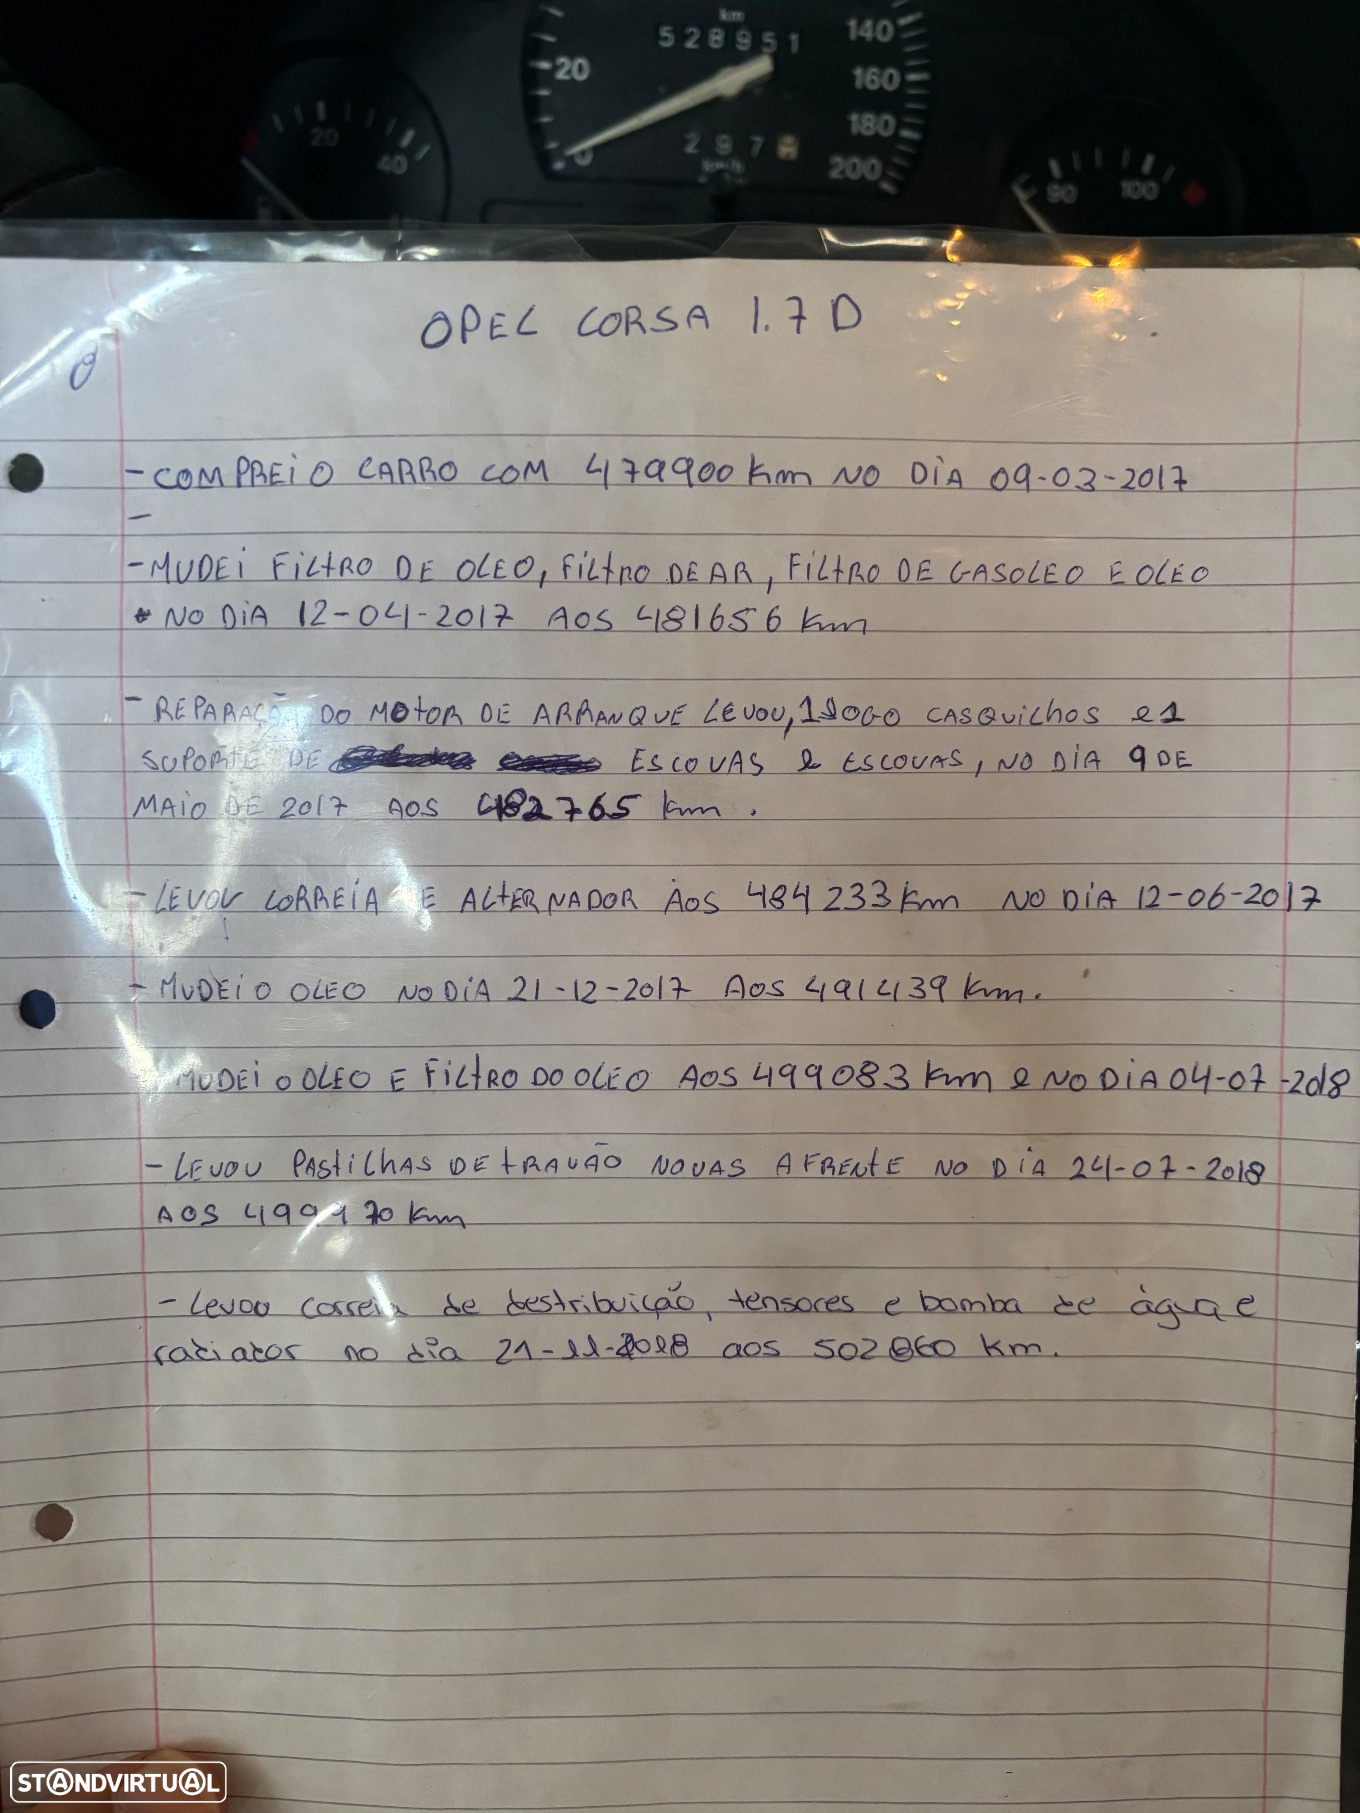 km
528951
20
140
160
180
200
0
297
km/h
20
40
90
100
OPEL CORSA 1.7 D
- COMPREI O CARRO COM 479900 Km NO DIA 09-03-2017
-
- MUDEI FILTRO DE OLEO, FILTRO DE AR, FILTRO DE GASOLEO E OLEO
NO DIA 12-04-2017 AOS 481656 Km
- REPARAÇÃO DO MOTOR DE ARRANQUE LEVOU, 1 JOGO CASQUILHOS e 1
SUPORTE DE ESCOVAS e ESCOVAS, NO DIA 9 DE
MAIO DE 2017 AOS 482765 Km.
- LEVOU CORREIA E ALTERNADOR AOS 484233 Km NO DIA 12-06-2017
- MUDEI O OLEO NO DIA 21-12-2017 AOS 491439 Km.
MUDEI O OLEO E FILTRO DO OLEO AOS 499083 Km e NO DIA 04-07-2018
- LEVOU PASTILHAS DE TRAVÃO NOVAS A FRENTE NO DIA 24-07-2018
AOS Km
- Levou correia de destribuição, tensores e bomba de água e
radiador no dia 21-11-2018 aos 502060 Km.
STANDVIRTUAL